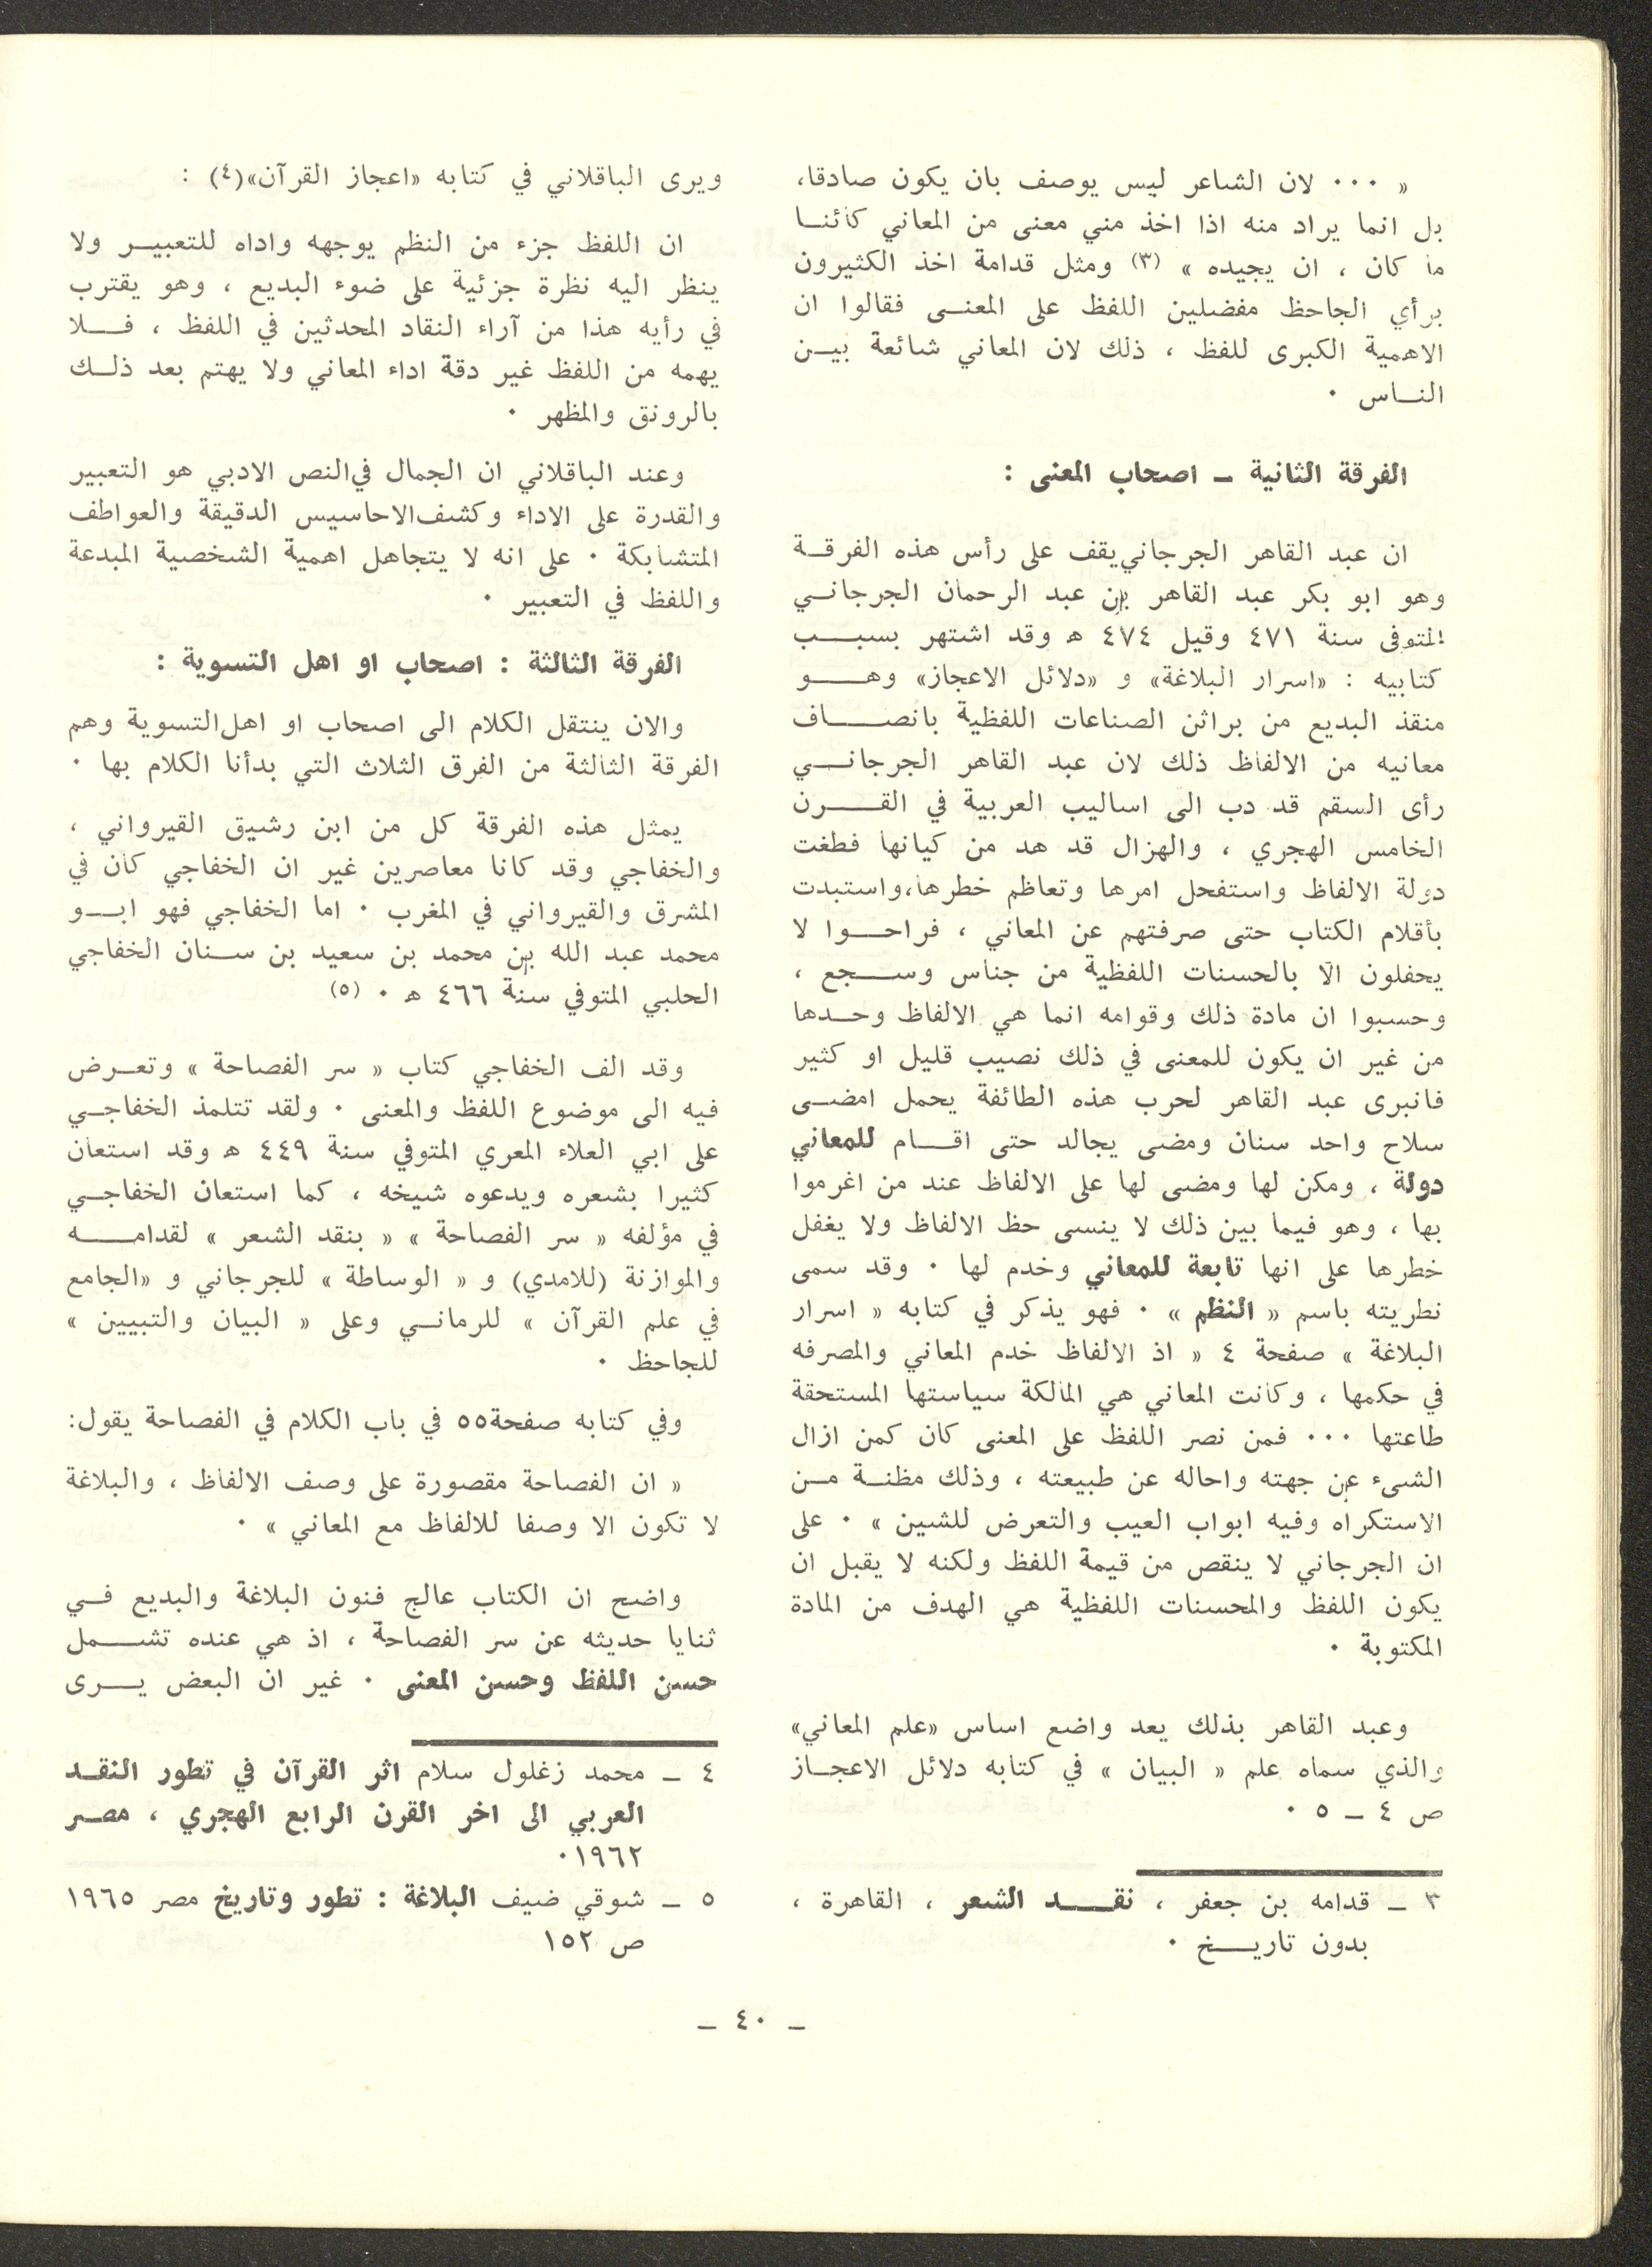 « ٠٠٠ لان الشاعر ليس يوصف بان يكون صادقا،
بل انما يراد منه اذا اخذ مني معنى من المعاني كائنا
ما كان ، ان يجيده » (٣) ومثل قدامة اخذ الكثيرون
برأي الجاحظ مفضلين اللفظ على المعنى فقالوا ان
الاهمية الكبرى للفظ ، ذلك لان المعاني شائعة بين
الناس ٠
الفرقة الثانية – اصحاب المعنى :
ان عبد القاهر الجرجاني يقف على رأس هذه الفرقة
وهو ابو بكر عبد القاهر بن عبد الرحمان الجرجاني
المتوفى سنة ٤٧١ وقيل ٤٧٤ ه وقد اشتهر بسبب
كتابيه : «اسرار البلاغة» و «دلائل الاعجاز» وهو
منقذ البديع من براثن الصناعات اللفظية بانصاف
معانيه من الالفاظ ذلك لان عبد القاهر الجرجاني
رأى السقم قد دب الى اساليب العربية في القرن
الخامس الهجري ، والهزال قد هد من كيانها فطغت
دولة الالفاظ واستفحل امرها وتعاظم خطرها،واستبدت
بأقلام الكتاب حتى صرفتهم عن المعاني ، فراحوا لا
يحفلون الا بالحسنات اللفظية من جناس وسجع ،
وحسبوا ان مادة ذلك وقوامه انما هي الالفاظ وحدها
من غير ان يكون للمعنى في ذلك نصيب قليل او كثير
فانبرى عبد القاهر لحرب هذه الطائفة يحمل امضى
سلاح واحد سنان ومضى يجالد حتى اقام للمعاني
دولة ، ومكن لها ومضى لها على الالفاظ عند من اغرموا
بها ، وهو فيما بين ذلك لا ينسى حظ الالفاظ ولا يغفل
خطرها على انها تابعة للمعاني وخدم لها ٠ وقد سمى
نظريته باسم « النظم » ٠ فهو يذكر في كتابه « اسرار
البلاغة » صفحة ٤ « اذ الالفاظ خدم المعاني والمصرفه
في حكمها ، وكانت المعاني هي المالكة سياستها المستحقة
طاعتها ٠٠٠ فمن نصر اللفظ على المعنى كان كمن ازال
الشىء عن جهته واحاله عن طبيعته ، وذلك مظنة من
الاستكراه وفيه ابواب العيب والتعرض للشين » ٠ على
ان الجرجاني لا ينقص من قيمة اللفظ ولكنه لا يقبل ان
يكون اللفظ والمحسنات اللفظية هي الهدف من المادة
المكتوبة ٠
وعبد القاهر بذلك يعد واضع اساس «علم المعاني»
والذي سماه علم « البيان » في كتابه دلائل الاعجاز
ص ٤ – ٥ ٠
٣ – قدامه بن جعفر ، نقد الشعر ، القاهرة ،
بدون تاريخ ٠
ويرى الباقلاني في كتابه «اعجاز القرآن»(٤) :
ان اللفظ جزء من النظم يوجهه واداه للتعبير ولا
ينظر اليه نظرة جزئية على ضوء البديع ، وهو يقترب
في رأيه هذا من آراء النقاد المحدثين في اللفظ ، فلا
يهمه من اللفظ غير دقة اداء المعاني ولا يهتم بعد ذلك
بالرونق والمظهر ٠
وعند الباقلاني ان الجمال في النص الادبي هو التعبير
والقدرة على الاداء وكشف الاحاسيس الدقيقة والعواطف
المتشابكة ٠ على انه لا يتجاهل اهمية الشخصية المبدعة
واللفظ في التعبير ٠
الفرقة الثالثة : اصحاب او اهل التسوية :
والان ينتقل الكلام الى اصحاب او اهل التسوية وهم
الفرقة الثالثة من الفرق الثلاث التي بدأنا الكلام بها ٠
يمثل هذه الفرقة كل من ابن رشيق القيرواني ،
والخفاجي وقد كانا معاصرين غير ان الخفاجي كان في
المشرق والقيرواني في المغرب ٠ اما الخفاجي فهو ابو
محمد عبد الله بن محمد بن سعيد بن سنان الخفاجي
الحلبي المتوفي سنة ٤٦٦ ه ٠ (٥)
وقد الف الخفاجي كتاب « سر الفصاحة » وتعرض
فيه الى موضوع اللفظ والمعنى ٠ ولقد تتلمذ الخفاجي
على ابي العلاء المعري المتوفي سنة ٤٤٩ ه وقد استعان
كثيرا بشعره ويدعوه شيخه ، كما استعان الخفاجي
في مؤلفه « سر الفصاحة » « بنقد الشعر » لقدامه
والموازنة (للامدي) و « الوساطة » للجرجاني و «الجامع
في علم القرآن » للرماني وعلى « البيان والتبيين »
للجاحظ ٠
وفي كتابه صفحة٥٥ في باب الكلام في الفصاحة يقول:
« ان الفصاحة مقصورة على وصف الالفاظ ، والبلاغة
لا تكون الا وصفا للالفاظ مع المعاني » ٠
واضح ان الكتاب عالج فنون البلاغة والبديع في
ثنايا حديثه عن سر الفصاحة ، اذ هي عنده تشمل
حسن اللفظ وحسن المعنى ٠ غير ان البعض يرى
٤ – محمد زغلول سلام اثر القرآن في تطور النقد
العربي الى اخر القرن الرابع الهجري ، مصر
١٩٦٢٠
٥ – شوقي ضيف البلاغة : تطور وتاريخ مصر ١٩٦٥
ص ١٥٢
– ٤٠ –